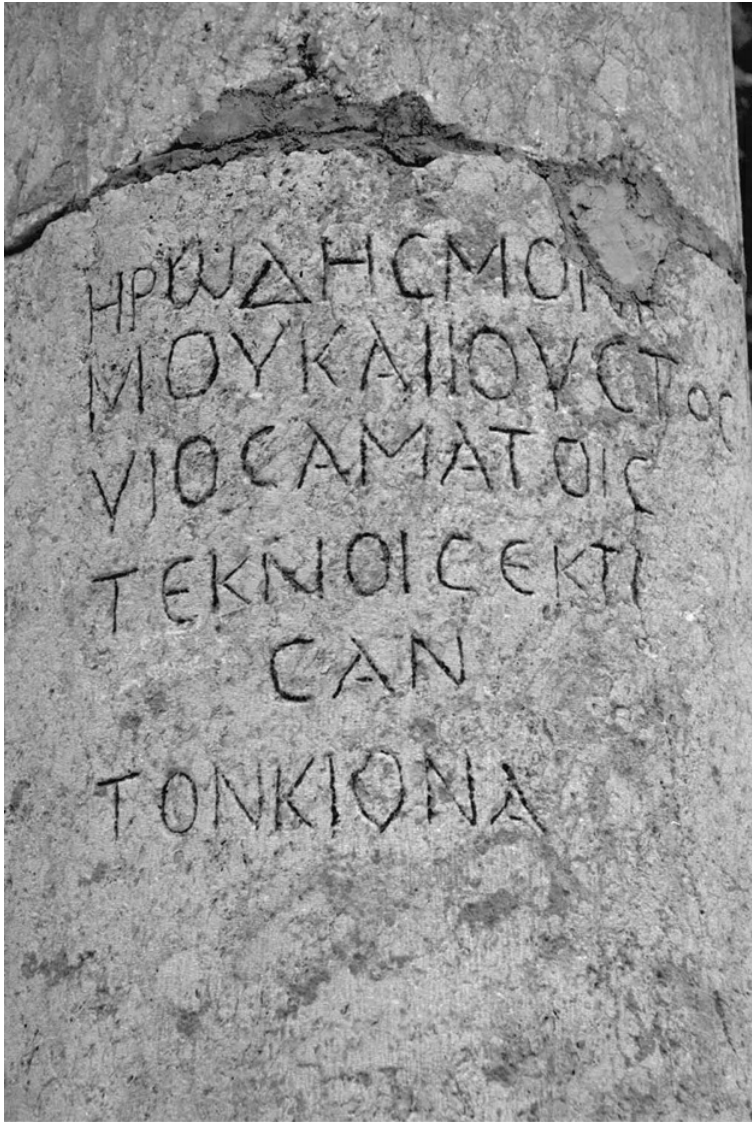 ΗΡΩΔΗϹΜΟΝΙ
ΜΟΥΚΑΙΙΟΥϹΤΟϹ
ΥΙΟϹΑΜΑΤΟΙϹ
ΤΕΚΝΟΙϹΕΚΤΙ
ϹΑΝ
ΤΟΝΚΙΟΝΑ